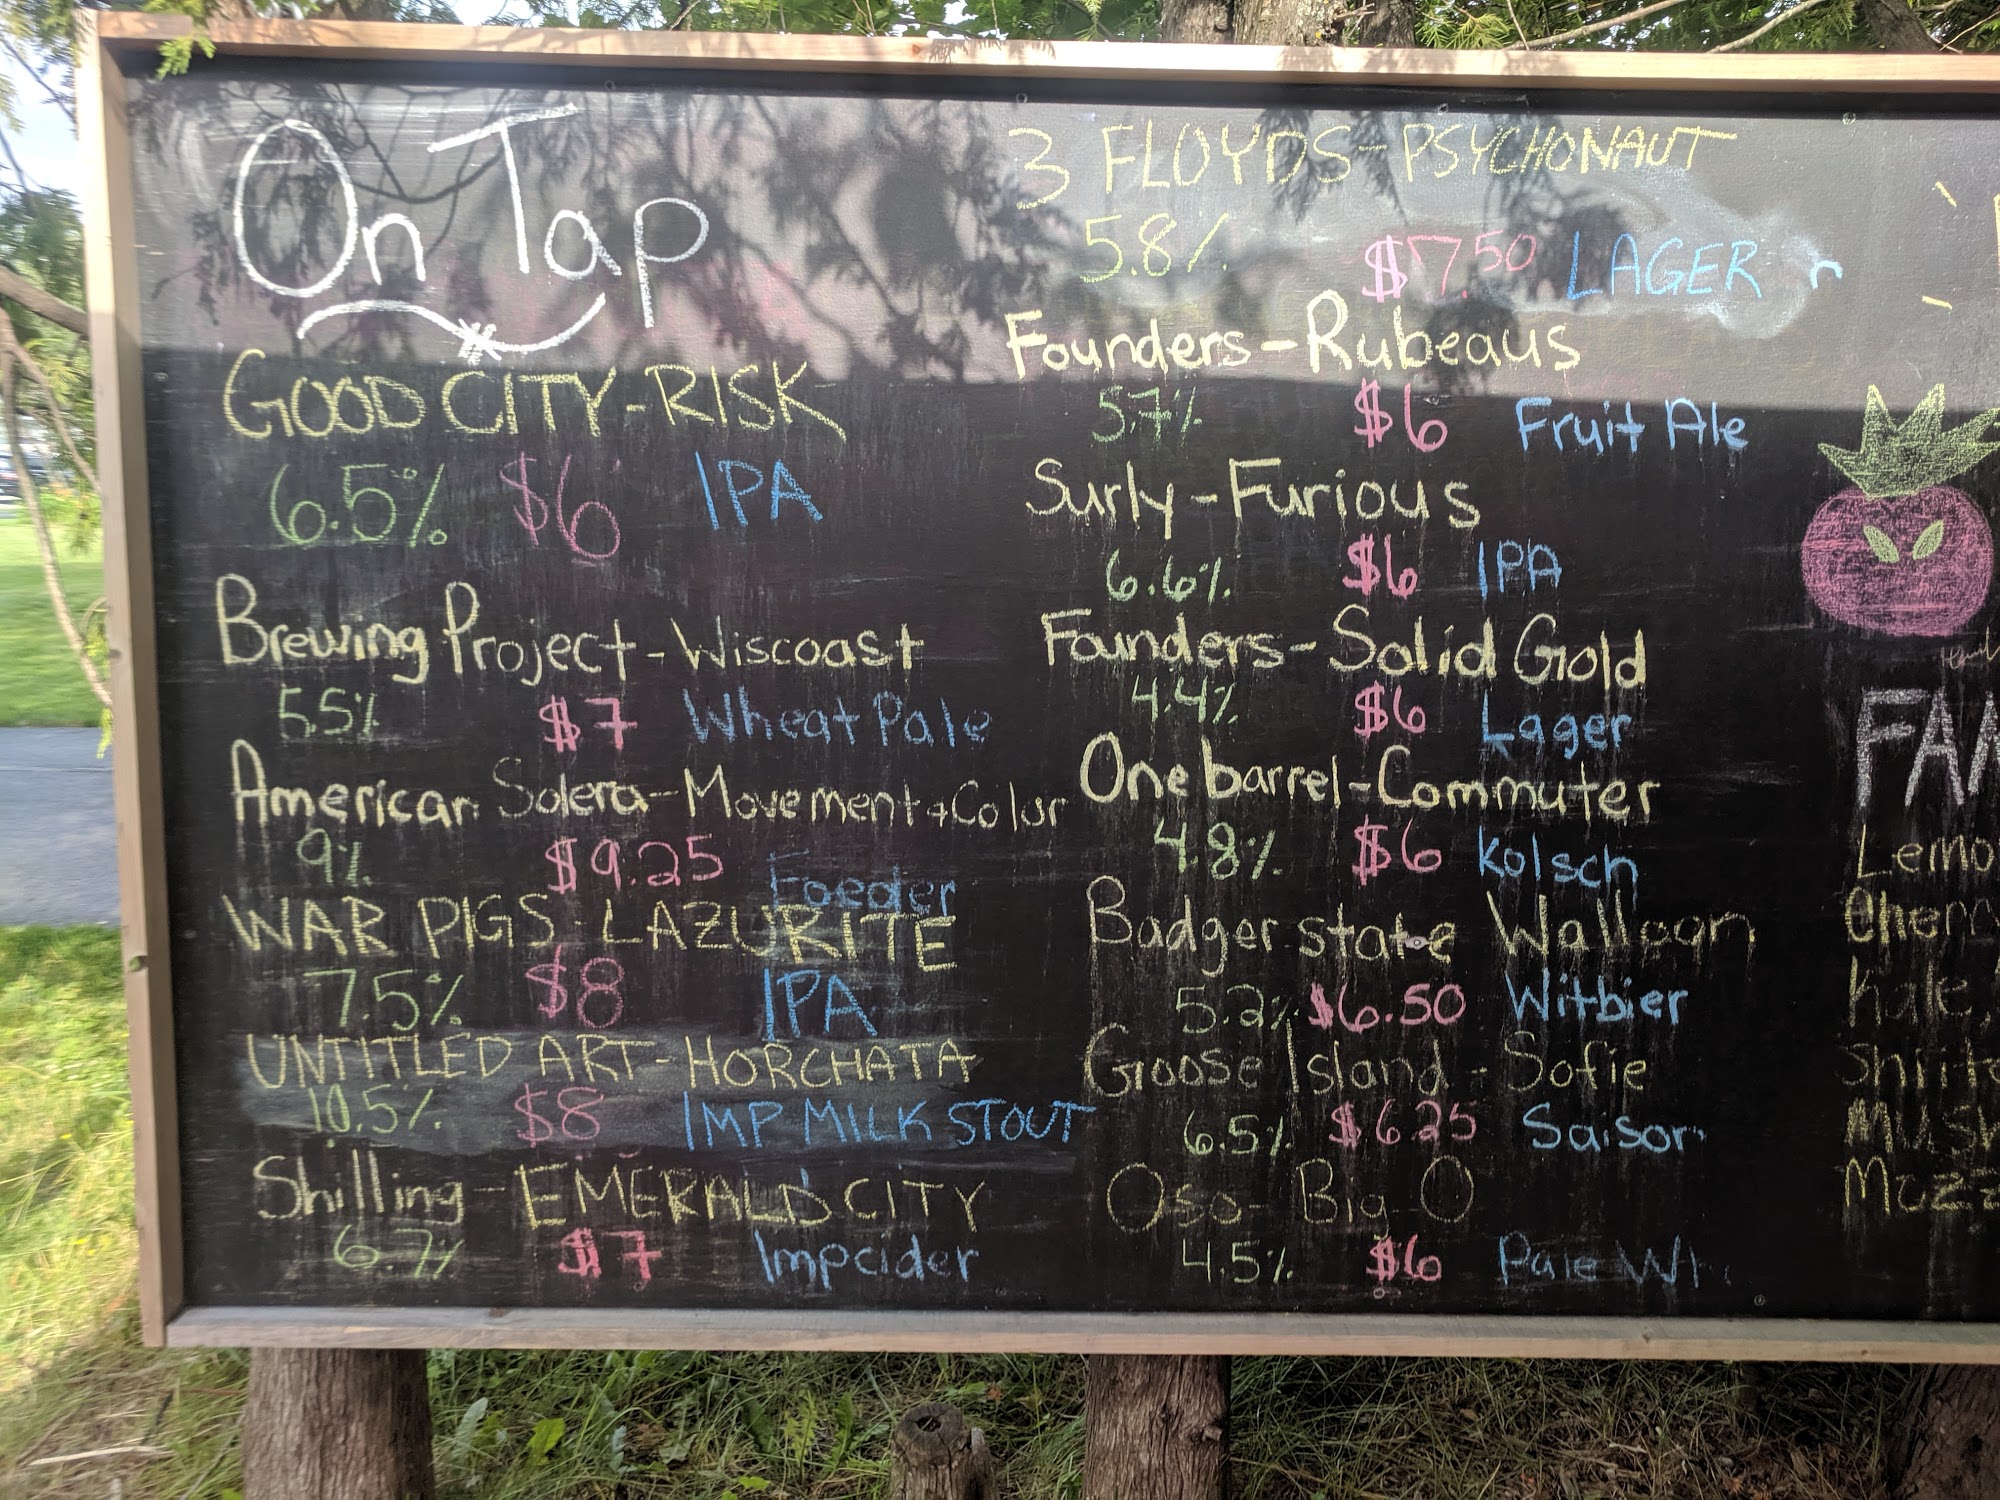 On Tap
GOOD CITY-RISK
6.5% $6 IPA
Brewing Project-Wiscoast
5.5% $7 Wheat Pale
American Solera-Movement+Color
9% $9.25 Foeder
WAR PIGS-LAZURITE
7.5% $8 IPA
UNTITLED ART-HORCHATA
10.5% $8 IMP MILK STOUT
Shilling-EMERALD CITY
6.7% $7 Impcider
3 FLOYDS-PSYCHONAUT
5.8% $7.50 LAGER
Founders-Rubeaus
5.7% $6 Fruit Ale
Surly-Furious
6.6% $6 IPA
Founders-Solid Gold
4.4% $6 Lager
One barrel-Commuter
4.8% $6 Kolsch
Badger state Walloon
5.2% $6.50 Witbier
Goose Island-Sofie
6.5% $6.25 Saison
Oso-Big O
4.5% $6 Pale
FAM
Lemo
Cherr
Kale,
Mush
Mozz